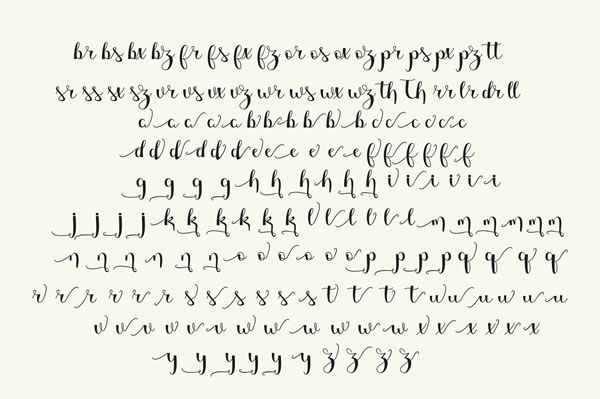 br bs bx bz fr fs fx fz or os ox oz pr ps px pz tt
sr ss sx sz vr vs vx vz wr ws wx wz th Th rr lr dr ll
a a a a a b b b b b b c c c c c
d d d d d d e e e e e e f f f f f f
g g g g h h h h h h i i i i i i
j j j j k k k k k k l l l l l l m m m m m
n n n n n n o o o o o o p p p p q q q q
r r r r r r s s s s s s t t t t u u u u u u
v v v v v v w w w w w w x x x x x x
y y y y y y z z z z